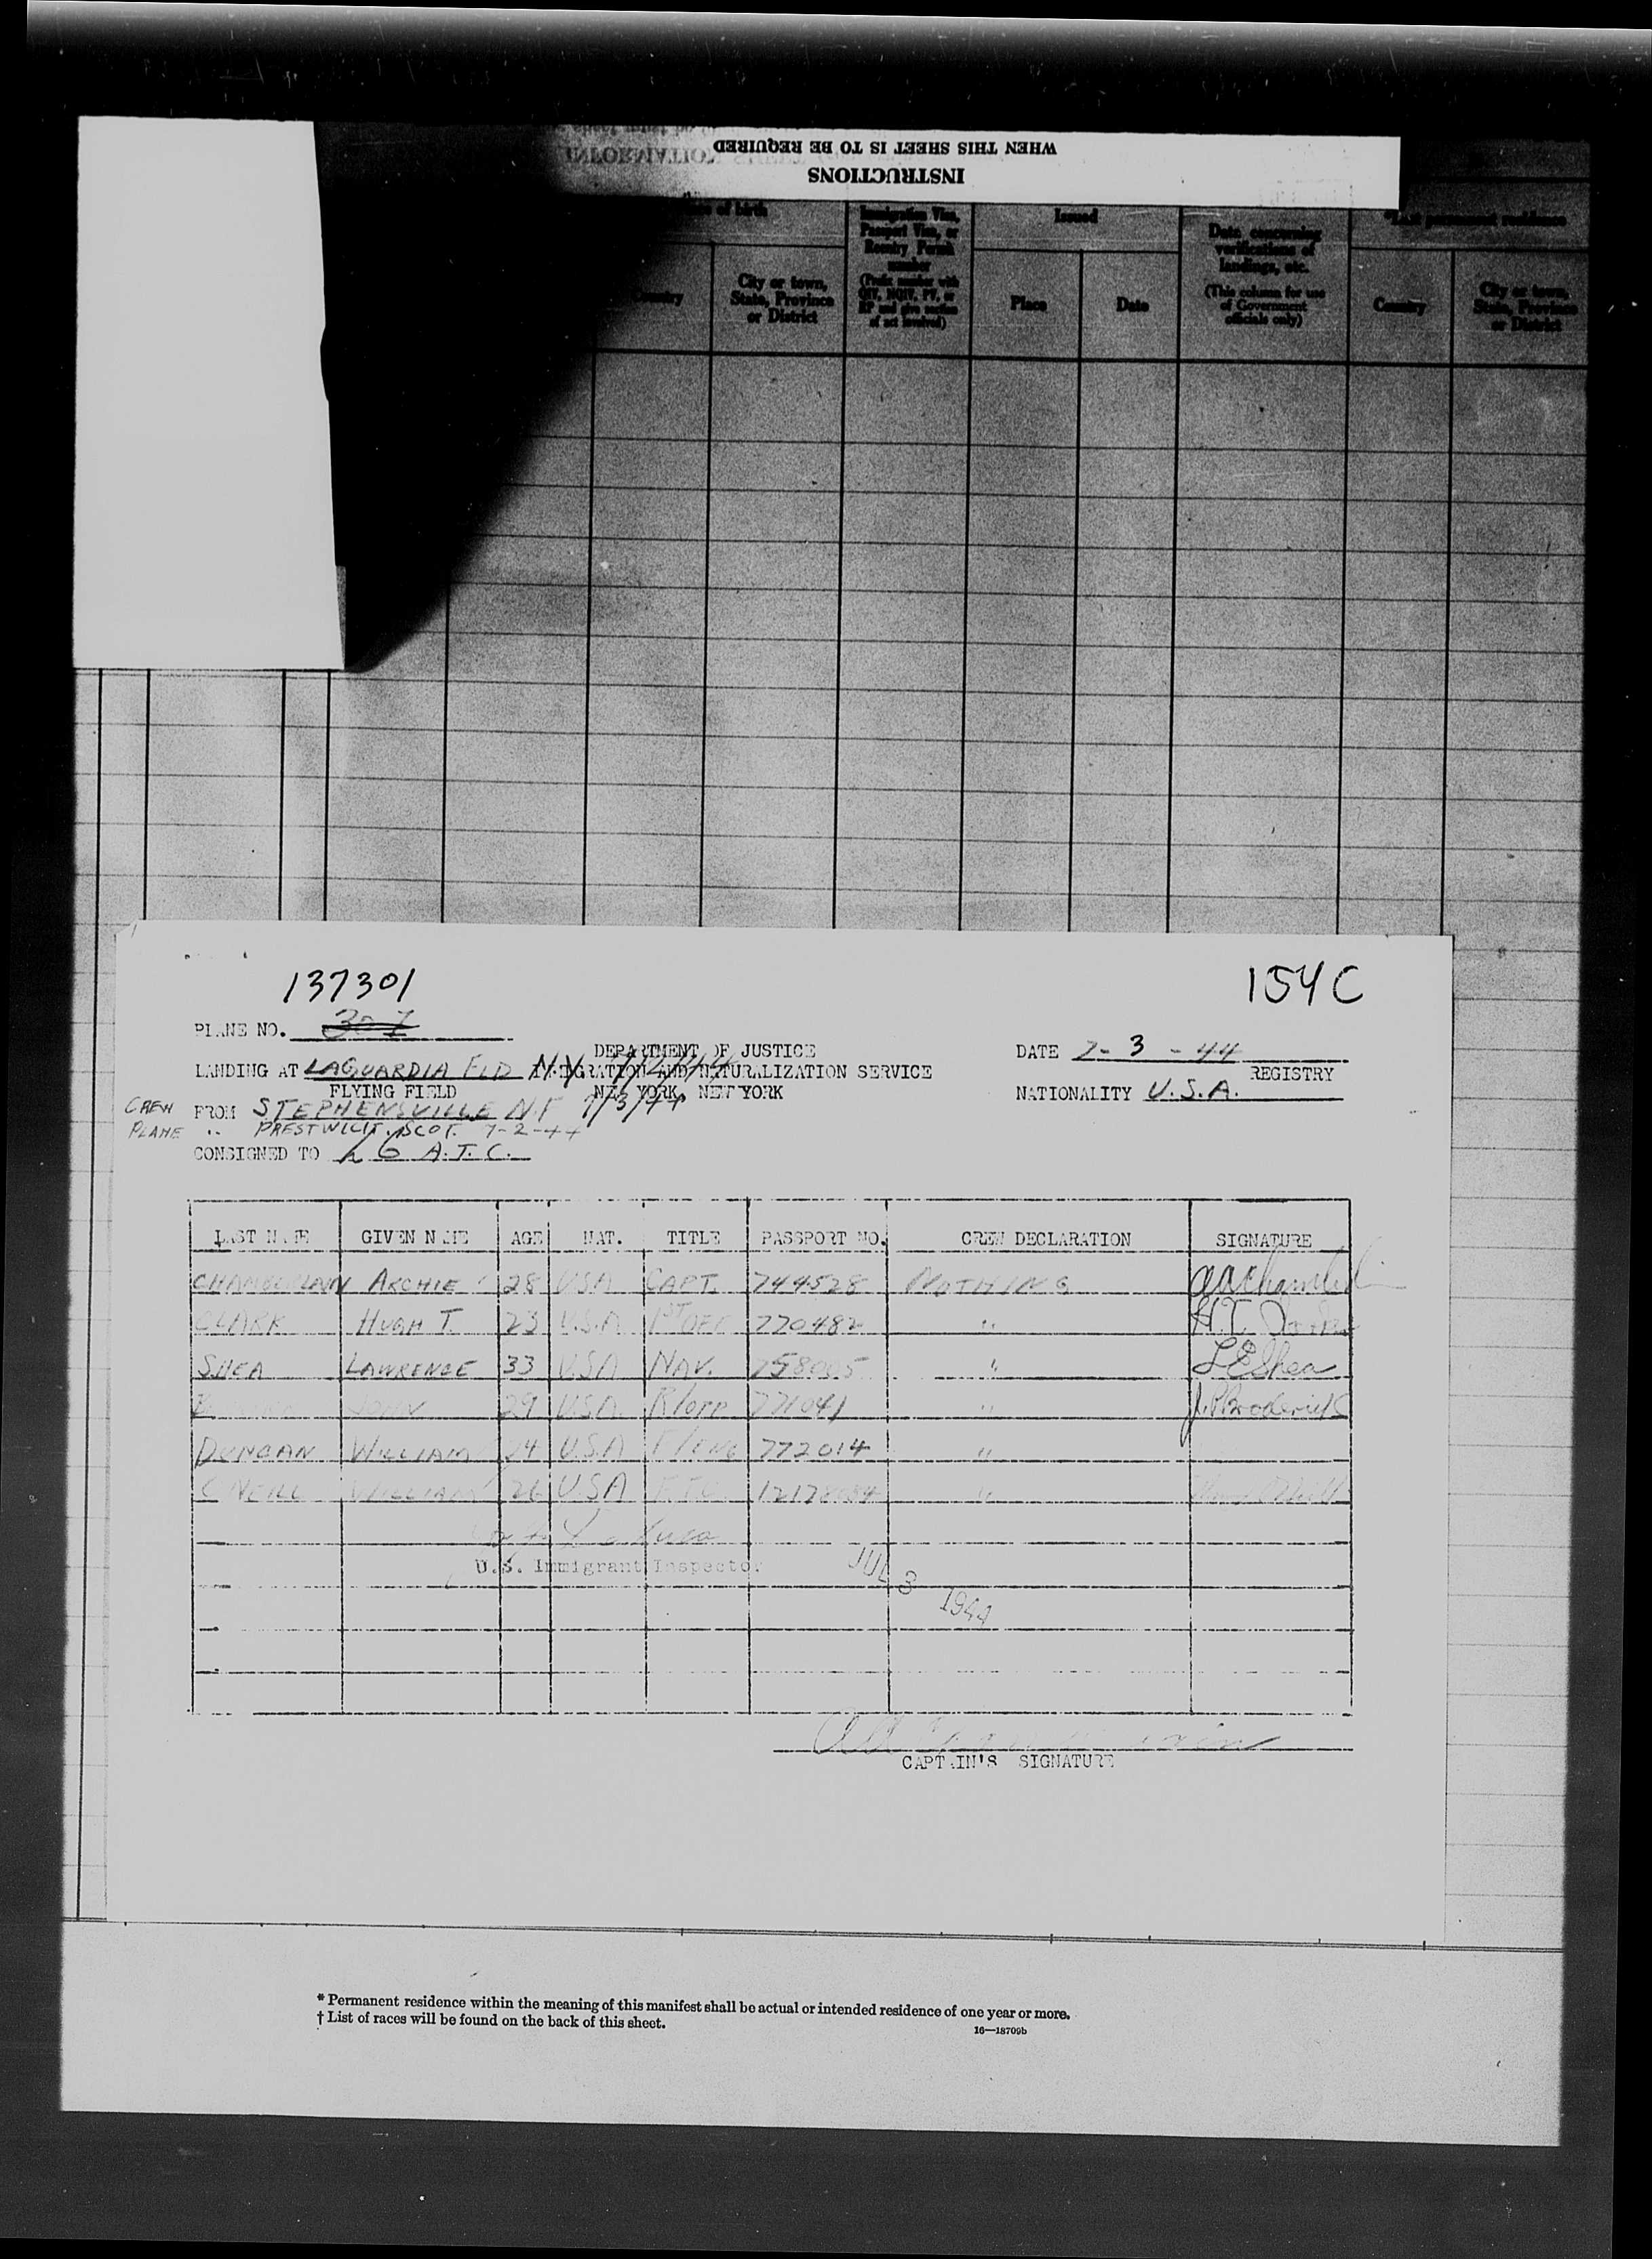 WHEN THIS SHEET IS TO BE REQUIRED
INSTRUCTIONS
of birth
Immigration Visa, Passport Visa, or Reentry Permit number
(Prefix number with QIV, NQIV, PV, or RP and give section of act involved)
Issued
Data concerning verifications of landings, etc.
(This column for use of Government officials only)
*Last permanent residence
Country
City or town, State, Province or District
Place
Date
Country
City or town, State, Province or District
137301
154C
PLANE NO. 307
DEPARTMENT OF JUSTICE
DATE 7-3-44
LANDING AT LAGUARDIA FLD N.Y.
IMMIGRATION AND NATURALIZATION SERVICE
REGISTRY
FLYING FIELD
NEW YORK, NEW YORK
NATIONALITY U.S.A.
CREW FROM STEPHENSVILLE N.F 7/3/44
PLANE " PRESTWICK, SCOT. 7-2-44
CONSIGNED TO A.T.C.
LAST NAME GIVEN NAME AGE NAT. TITLE PASSPORT NO. CREW DECLARATION SIGNATURE
CHAMBERLAIN ARCHIE 28 USA CAPT. 744528 NOTHING
CLARK HUGH T. 23 U.S.A 1ST OFF 770482 "
SHEA LAWRENCE 33 U.S.A NAV. " L E Shea
JOHN 29 U.S.A. R/OPP 771041 " J. P. Broderick
DUNCAN WILLIAM 24 U.S.A F/ENG 772014 "
O'NEILL WILLIAM 26 U.S.A "
U.S. Immigrant Inspector.
JUL 3 1944
CAPTAIN'S SIGNATURE
* Permanent residence within the meaning of this manifest shall be actual or intended residence of one year or more.
† List of races will be found on the back of this sheet.
16—18709b